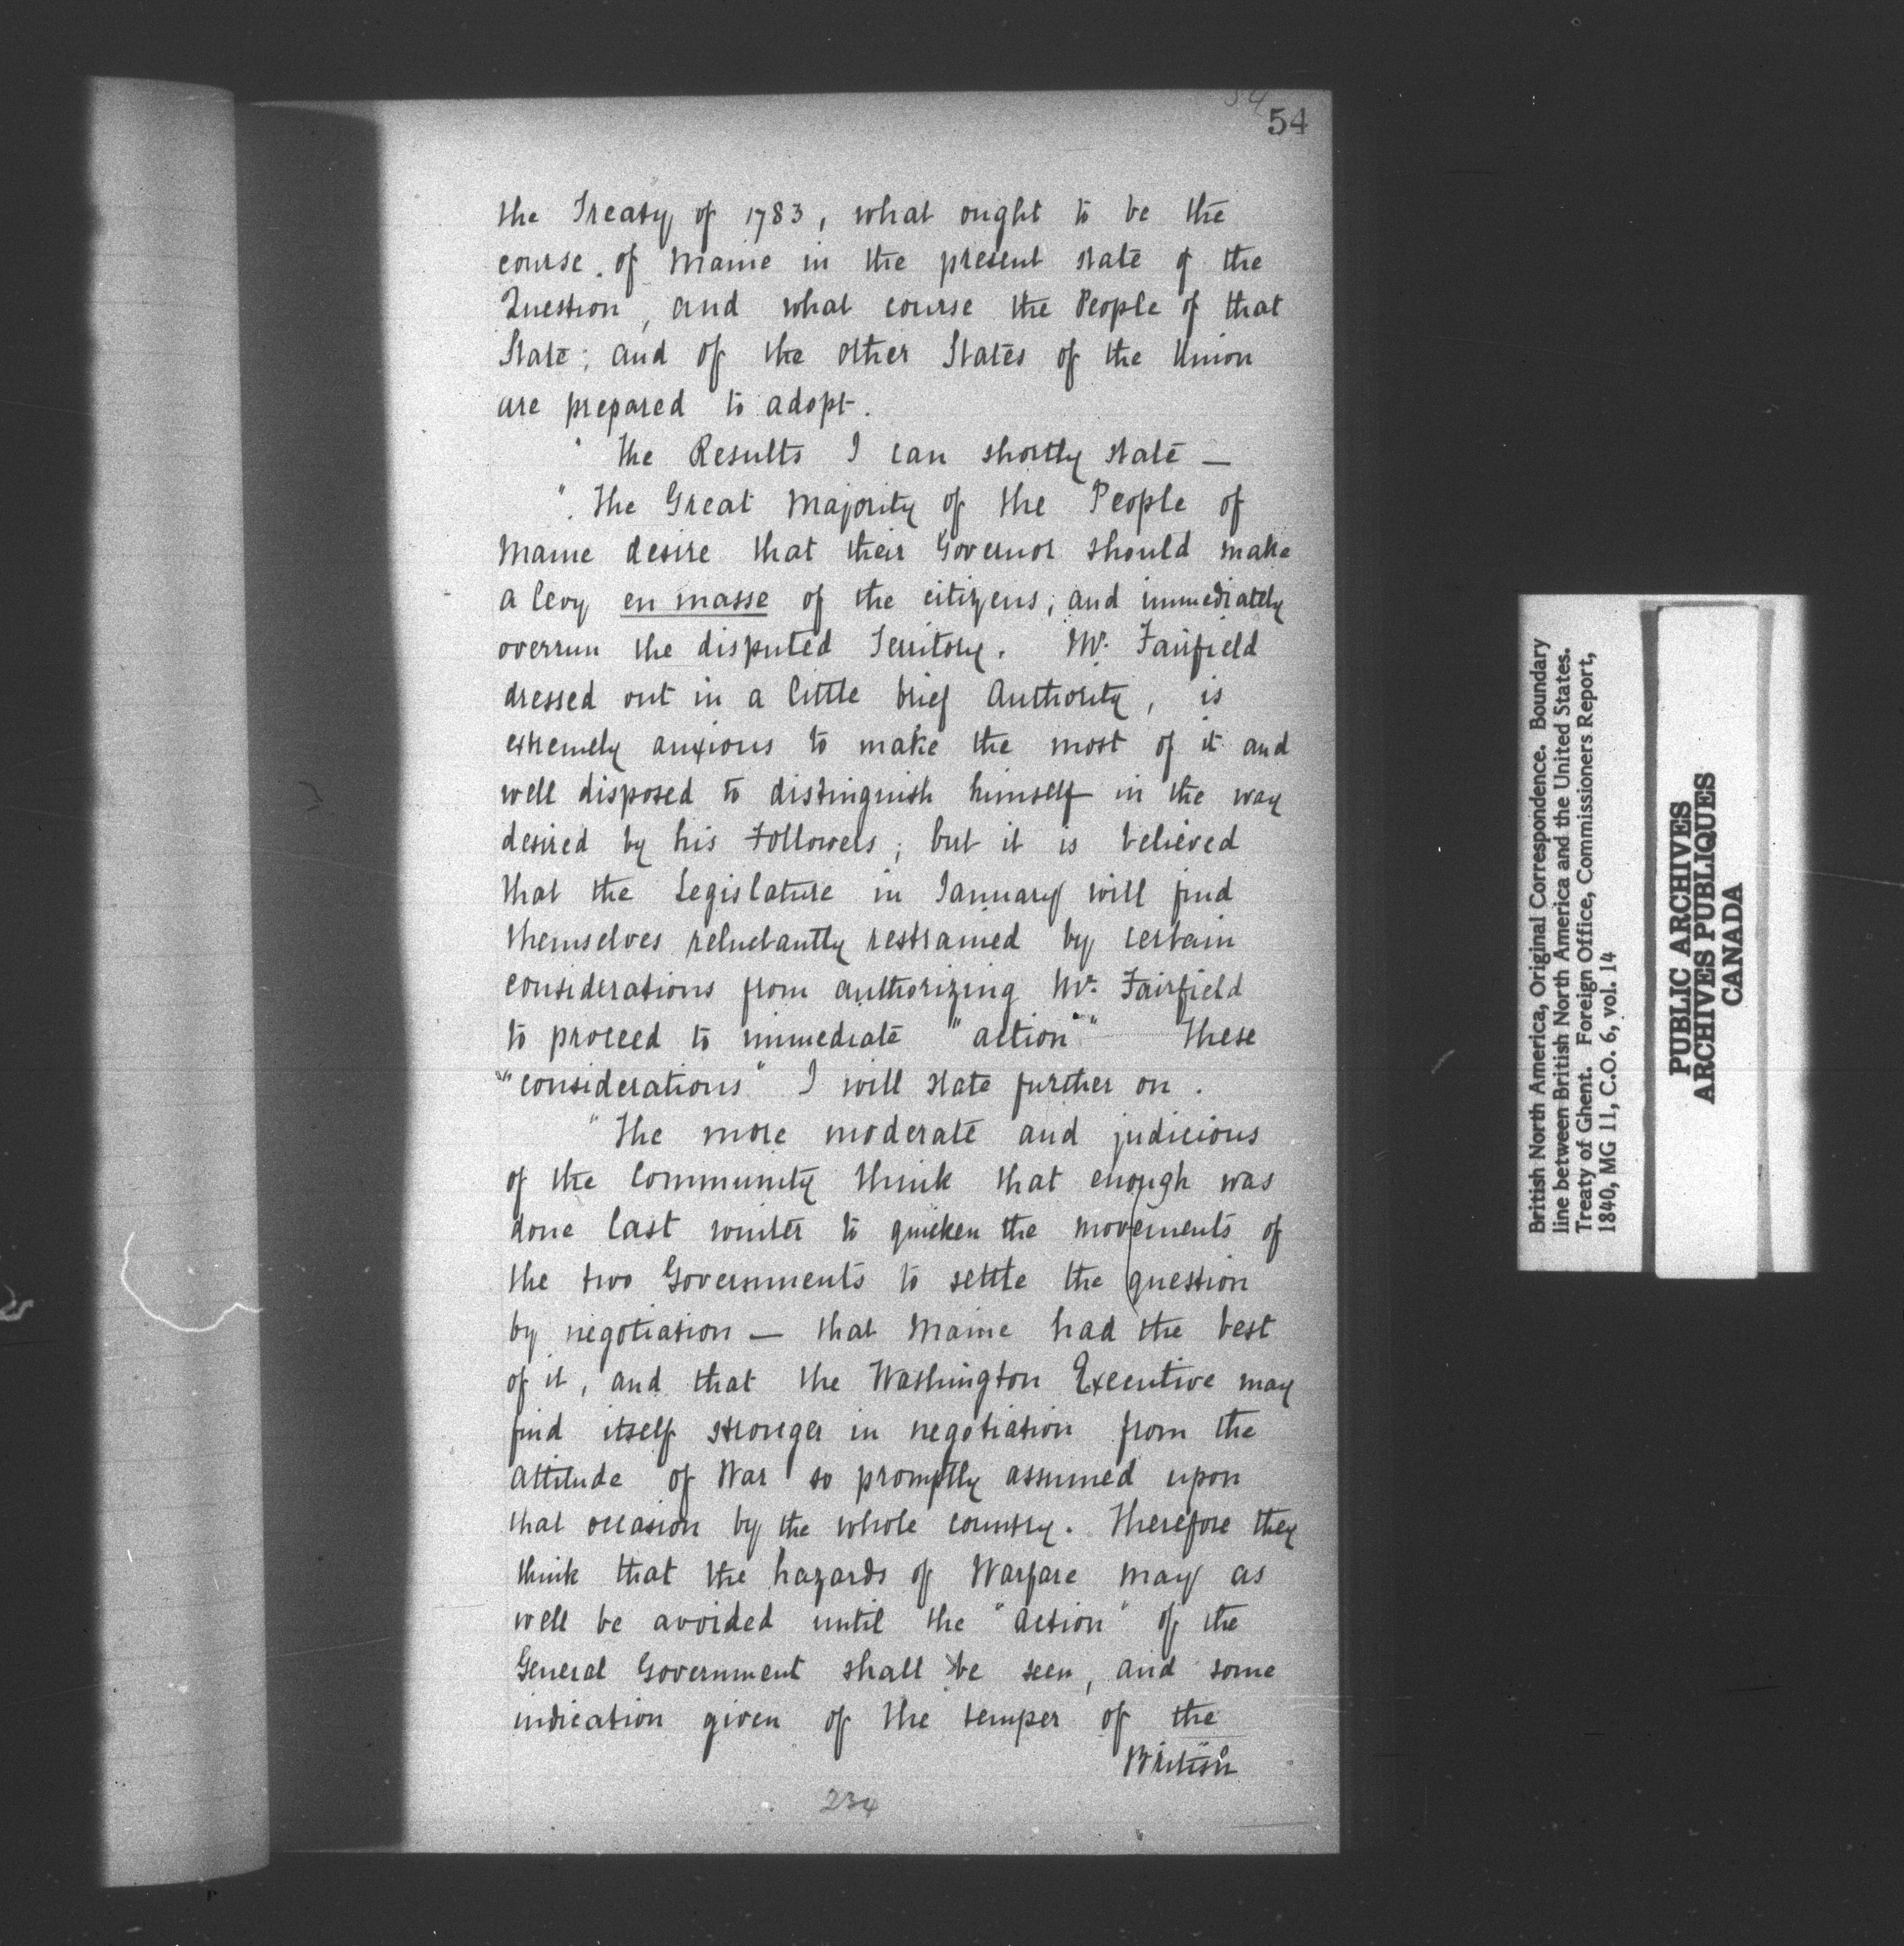 54
54
the Treaty of 1783, what ought to be the
course of Maine in the present state of the
Question, and what course the People of that
State; and of the other States of the Union
are prepared to adopt.
" The Results I can shortly state —
" The Great Majority of the People of
Maine desire that their Governor should make
a levy en masse of the citizens; and immediately
overrun the disputed Territory. Mr. Fairfield
dressed out in a little brief Authority, is
extremely anxious to make the most of it and
well disposed to distinguish himself in the way
desired by his Followers; but it is believed
that the Legislature in January will find
themselves reluctantly restrained by certain
considerations from authorizing Mr. Fairfield
to proceed to immediate "action" These
"considerations" I will state further on.
" The more moderate and judicious
of the Community think that enough was
done last winter to quicken the movements of
the two Governments to settle the question
by negotiation — that Maine had the best
of it, and that the Washington Executive may
find itself stronger in negotiation from the
attitude of War so promptly assumed upon
that occasion by the whole country. Therefore they
think that the hazards of Warfare may as
well be avoided until the "action" of the
General Government shall be seen, and some
indication given of the temper of the
British
234
British North America, Original Correspondence. Boundary
line between British North America and the United States.
Treaty of Ghent. Foreign Office, Commissioners Report,
1840, MG 11, C.O. 6, vol. 14
PUBLIC ARCHIVES
ARCHIVES PUBLIQUES
CANADA